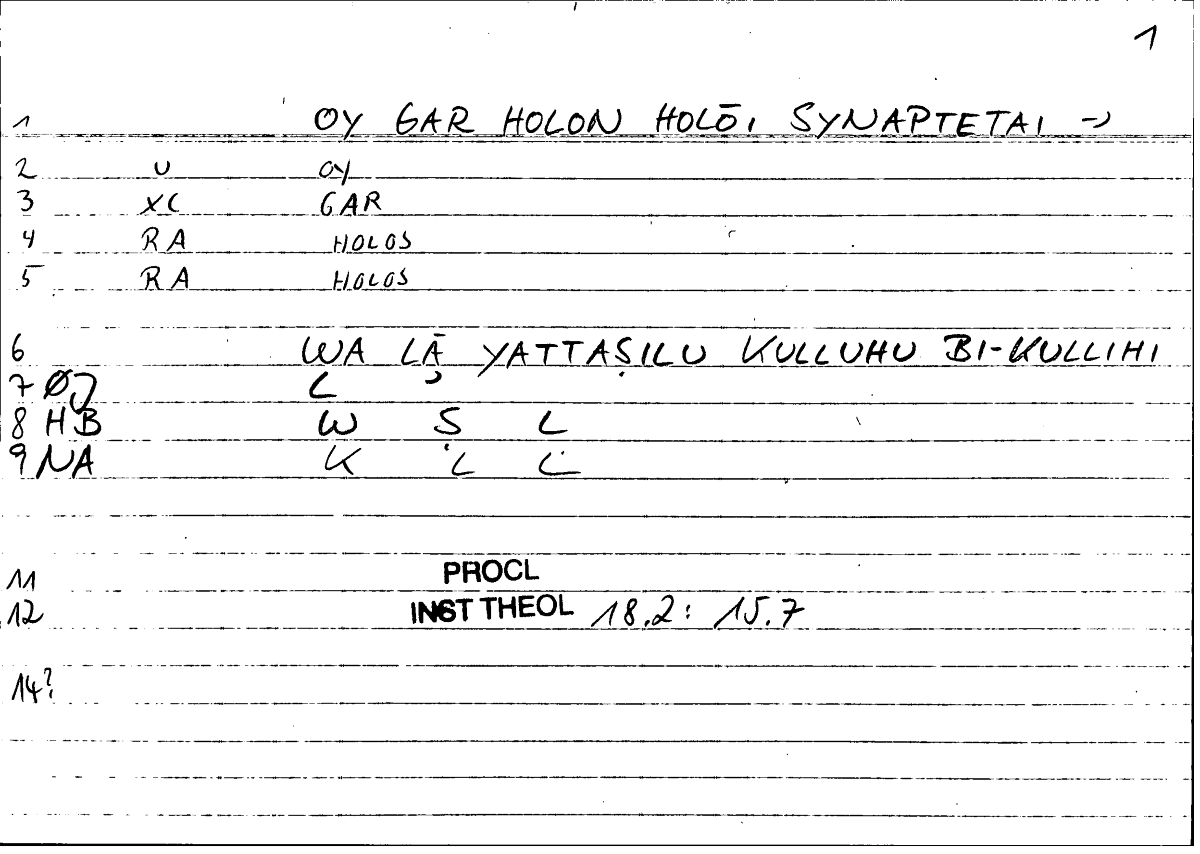 1
1 OY GAR HOLON HOLŌI SYNAPTETAI →
2 U OY
3 XC GAR
4 RA HOLOS
5 RA HOLOS
6 WA LĀ YATTAṢILU KULLUHU BI-KULLIHI
7 ØJ L ʾ
8 HB W Ṣ L
9 NA K L L
11 PROCL
12 INST THEOL 18.2: 15.7
14?